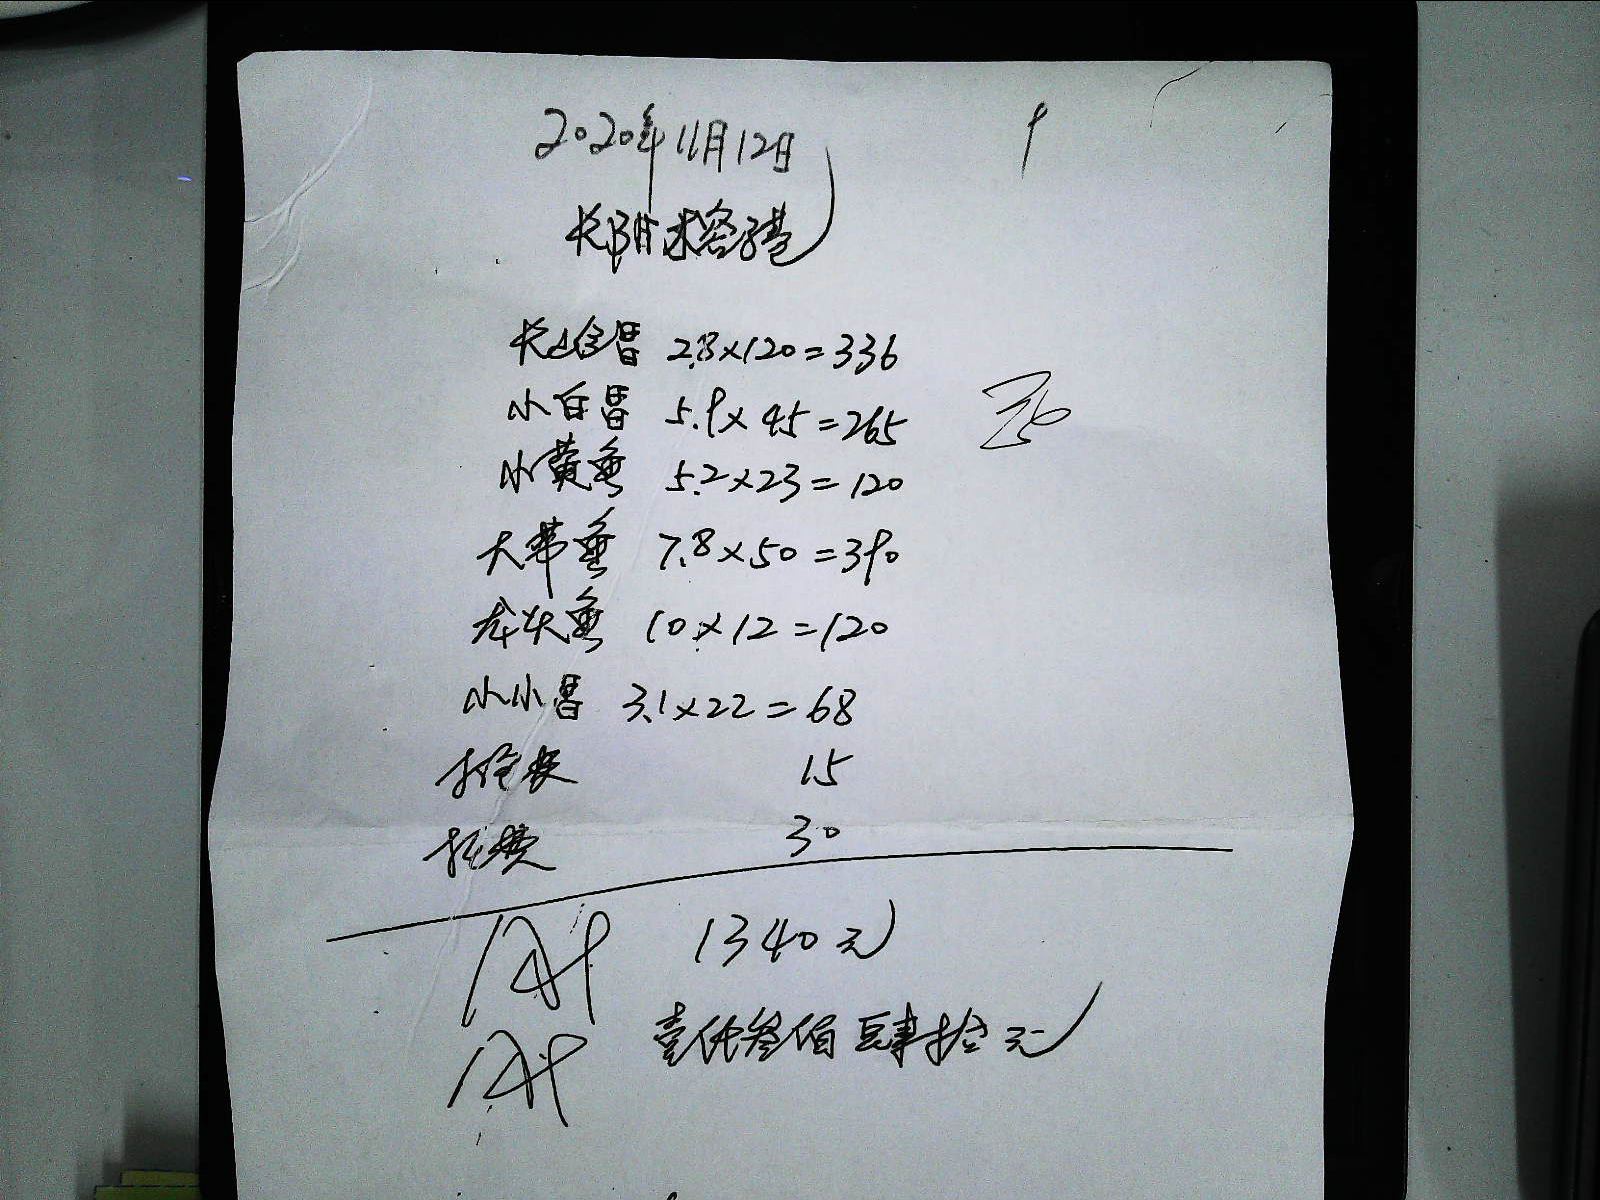 2020年11月12日
长阳求客港
长山倉昌 2.8×120=336
小白昌 5.9×45=265
小黄鱼 5.2×23=120
大带鱼 7.8×50=390
龙头鱼 10×12=120
小小昌 3.1×22=68
15
托费 30
1340元
壹仟叁佰肆拾元